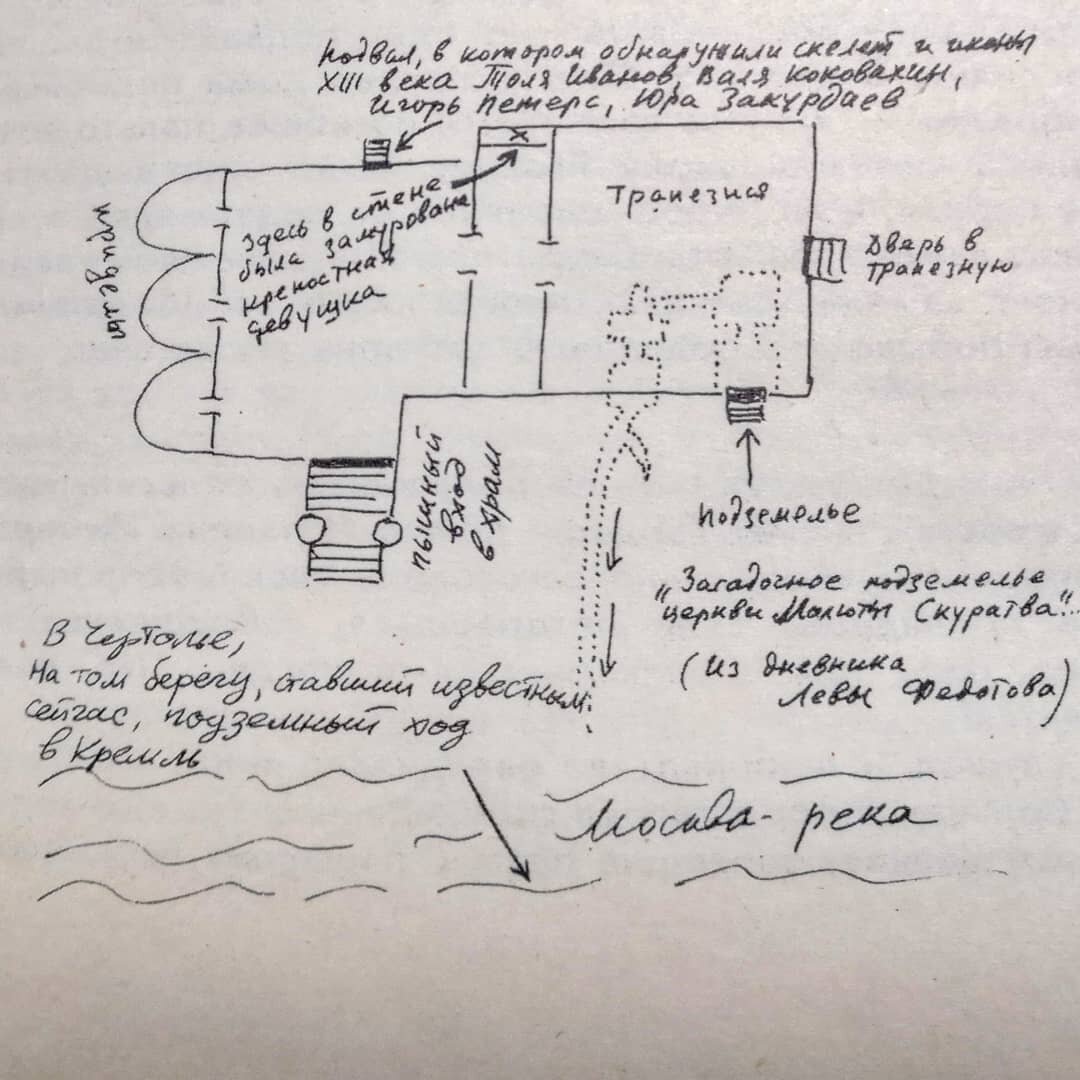 Подвал, в котором обнаружили скелет и иконы
XIII века Толя Иванов, Валя Коковахин,
Игорь Петерс, Юра Закурдаев
x
Трапезная
приделы
Здесь в стене
была замурована
крепостная
девушка
Дверь в
трапезную
пышный
вход
в храм
подземелье
„Загадочное подземелье
церкви Малюты Скуратва"...
(Из дневника
Левы Федотова)
В Чертолье,
На том берегу, ставший известным
сейчас, подземный ход
в Кремль
Москва-река